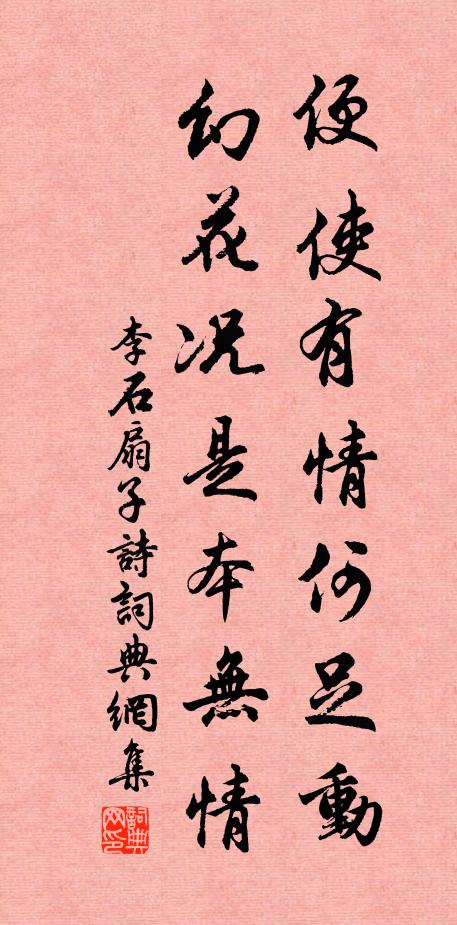 便使有情何足動
幻花况是本無情
李石扇子詩詞典網集
詞典网印